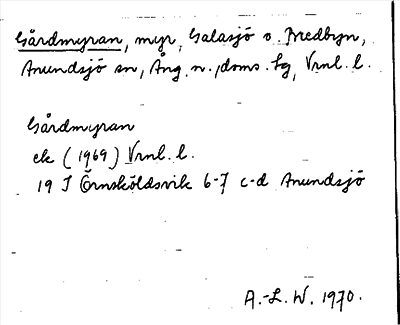 Gårdmyran, myr, Galasjö o. Bredbyn,
Anundsjö sn, Ång. n., doms. hg, Vrnl. l.
Gårdmyran
ek (1969) Vrnl. l.
19 J Örnsköldsvik 6-7 c-d Anundsjö
A.-L. W. 1970.